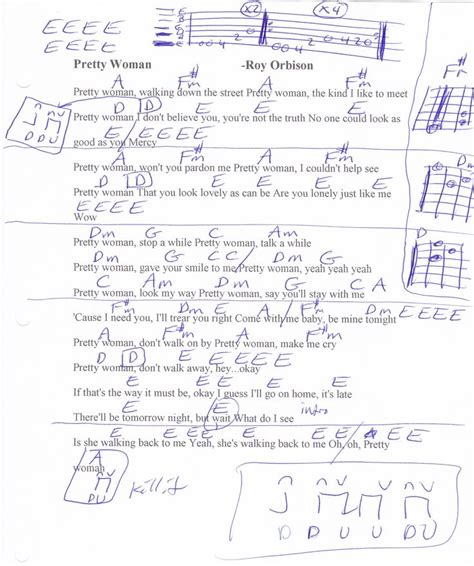 X2 X4
E E E E
E E E E
E
B
G
D
A
E
0 0 4 2 0 0 4 2 0
Pretty Woman -Roy Orbison
A F#m A F#m
Pretty woman, walking down the street Pretty woman, the kind I like to meet
D D E E E E E
Pretty woman I don't believe you, you're not the truth No one could look as
good as you Mercy
A F#m A F#m
Pretty woman, won't you pardon me Pretty woman, I couldn't help see
D D E E E E
Pretty woman That you look lovely as can be Are you lonely just like me
E E E E
Wow
Dm G C Am
Pretty woman, stop a while Pretty woman, talk a while
Dm G C C Dm G
Pretty woman, gave your smile to me Pretty woman, yeah yeah yeah
C Am Dm G C A
Pretty woman, look my way Pretty woman, say you'll stay with me
F#m Dm E A F#m Dm E E E E
'Cause I need you, I'll trear you right Come with me baby, be mine tonight
A F#m A F#m
Pretty woman, don't walk on by Pretty woman, make me cry
D D E E E E
Pretty woman, don't walk away, hey...okay
E E E E E
If that's the way it must be, okay I guess I'll go on home, it's late
E E intro
There'll be tomorrow night, but wait What do I see
E E E E E E E E
Is she walking back to me Yeah, she's walking back to me Oh, oh, Pretty
A
woman
D U
kill it
D D U
F#m
Dm
D
D D U U D U